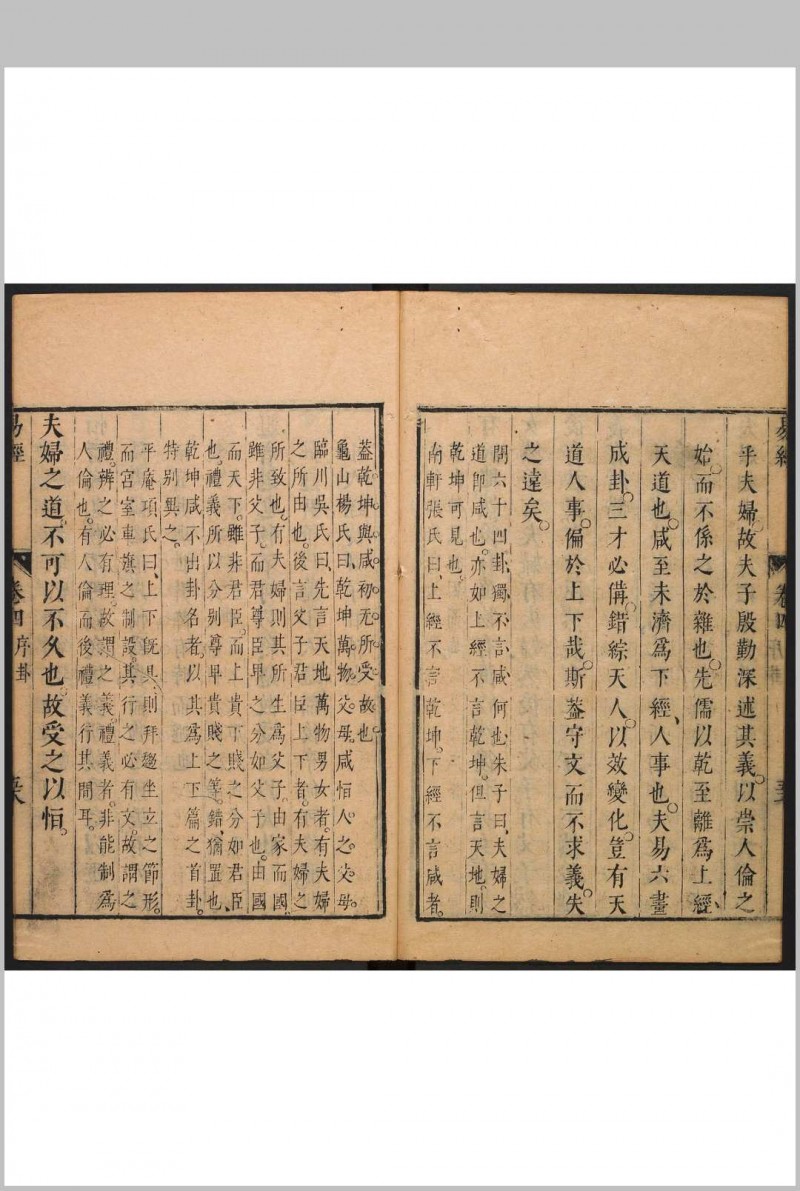 易經
卷四
序卦
乎夫婦。故夫子殷勤深述其義。以崇人倫之
始。而不係之於雜也。先儒以乾至離爲上經、
天道也。咸至未濟爲下經、人事也。夫易六畫
成卦。三才必備。錯綜天人。以效變化。豈有天
道人事。偏於上下哉。斯葢守文而不求義。失
之遠矣。
問六十四卦、獨不言咸何也。朱子曰、夫婦之
道卽咸也。亦如上經不言乾坤。但言天地。則
乾坤可見也。
南軒張氏曰、上經不言乾坤。下經不言咸者。
葢乾坤與咸初无所受故也。
龜山楊氏曰、乾坤萬物父母。咸恒人之父母。
臨川吳氏曰、先言天地萬物男女者。有夫婦
之所由也。後言父子君臣上下者。有夫婦之
所致也。有夫婦則其所生爲父子。由家而國
雖非父子。而君尊臣卑之分如父子也。由國
而天下。雖非君臣。而上貴下賤之分如君臣
也。禮義所以分别尊卑貴賤之等。錯、猶置也、
乾坤咸不出卦名者。以其爲上下篇之首卦
特别異之。
平庵項氏曰、上下旣具。則拜趨坐立之節形。
而宮室車旗之制設。其行之必有文。故謂之
禮。辨之必有理。故謂之義。禮義者。非能制爲
人倫也。有人倫而後禮義行其間耳。
夫婦之道。不可以不久也。故受之以恒。
易經
卷四
序卦